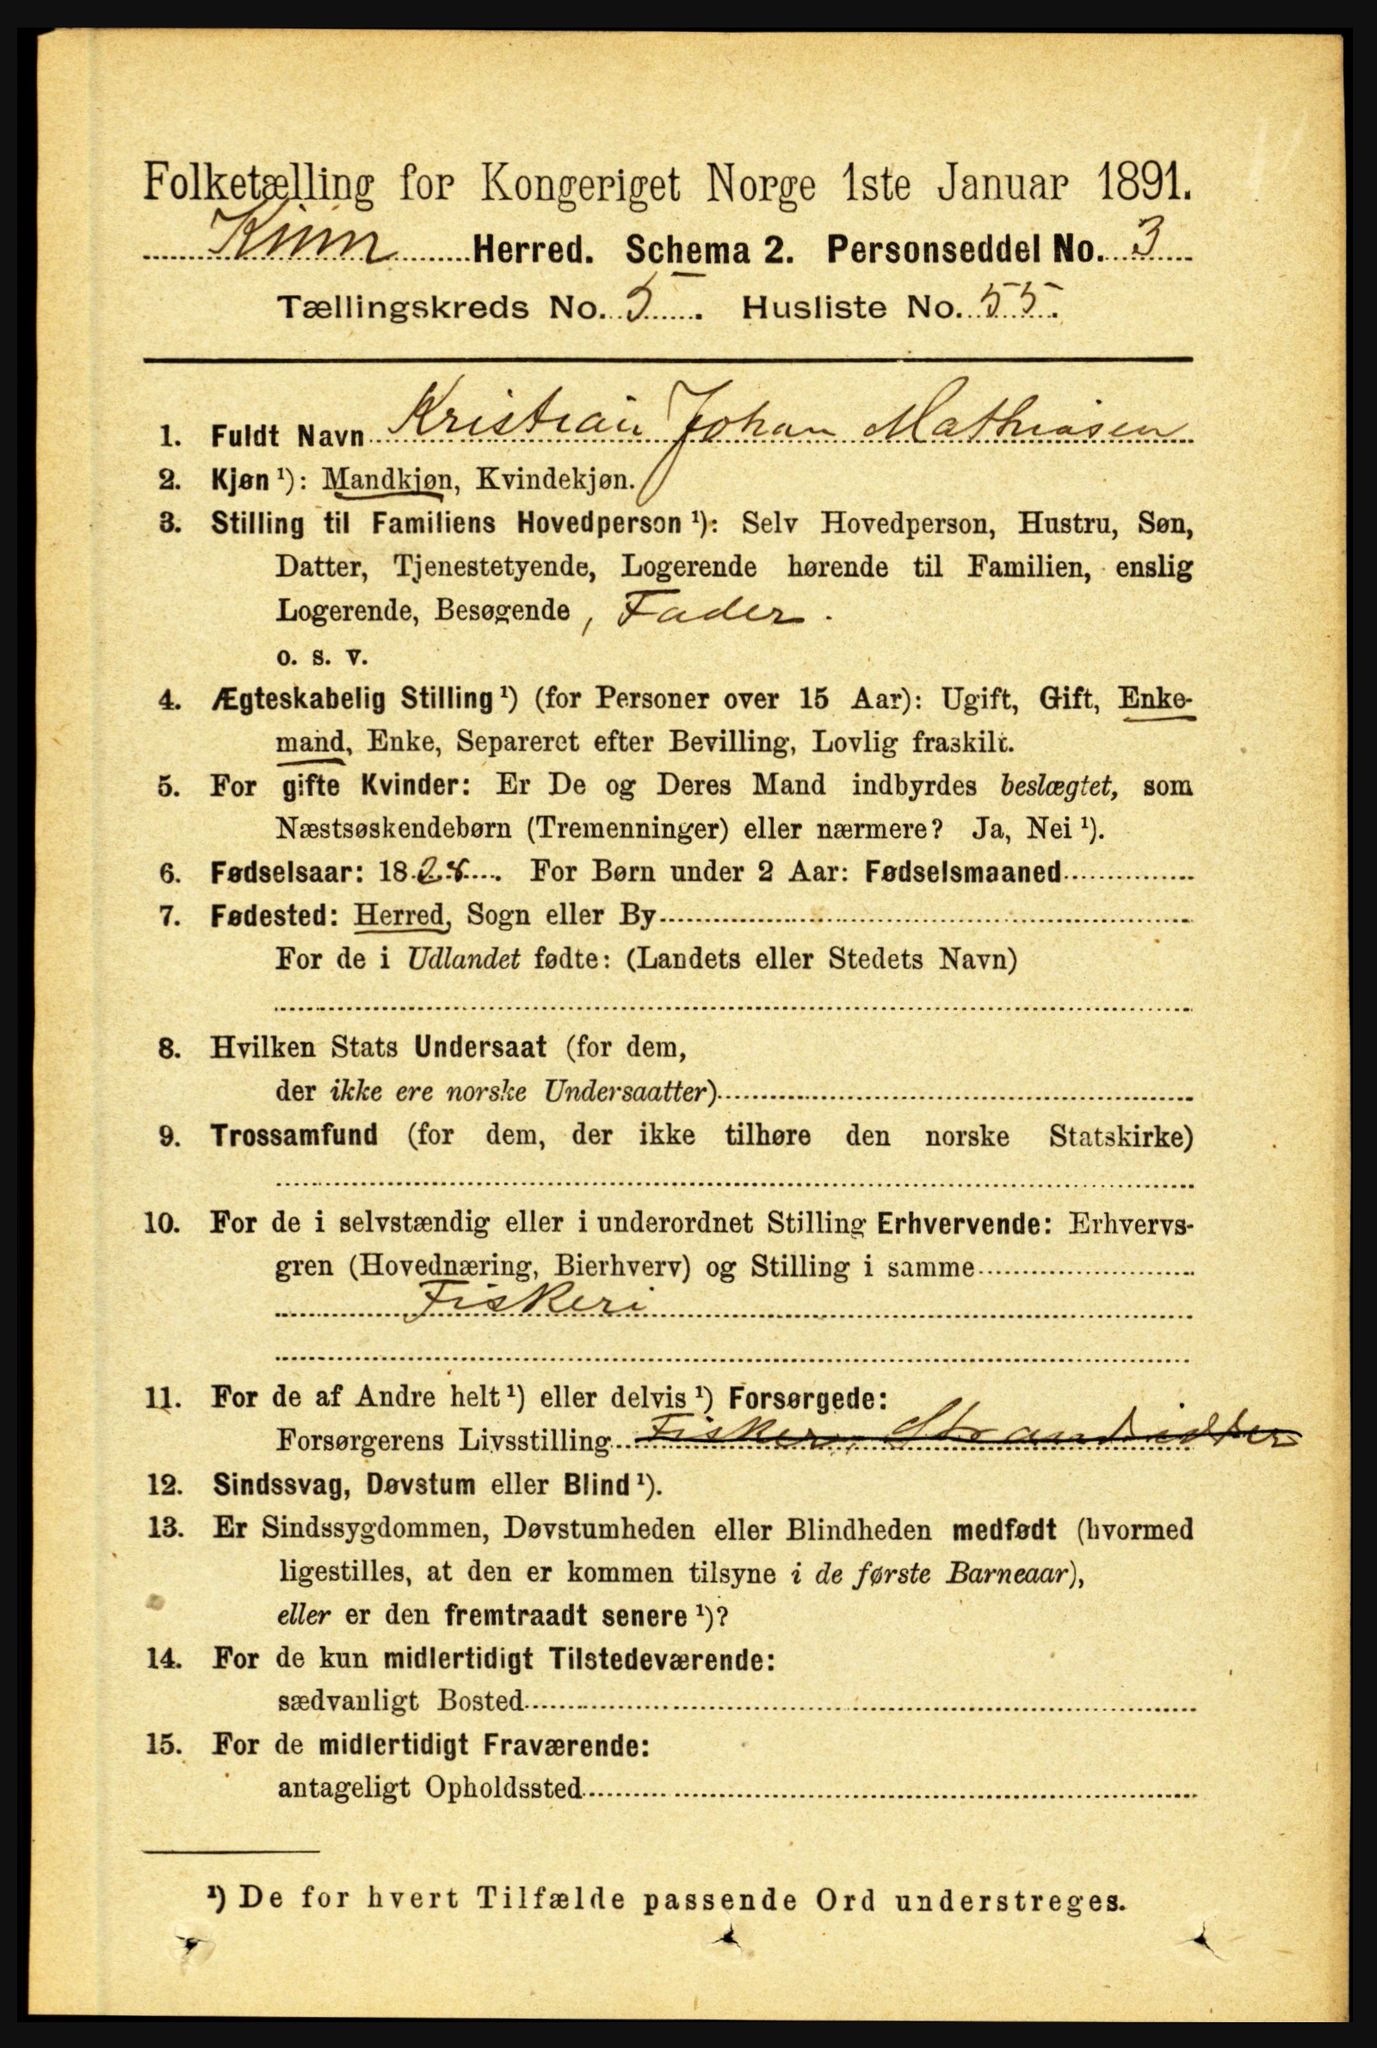 Folketælling for Kongeriget Norge 1ste Januar 1891.
Kinn Herred. Schema 2. Personseddel No. 3
Tællingskreds No. 5. Husliste No. 55.
1. Fuldt Navn Kristian Johan Mathiasen
2. Kjøn ¹): Mandkjøn, Kvindekjøn.
3. Stilling til Familiens Hovedperson ¹): Selv Hovedperson, Hustru, Søn,
Datter, Tjenestetyende, Logerende hørende til Familien, enslig
Logerende, Besøgende, Fader.
o. s. v.
4. Ægteskabelig Stilling ¹) (for Personer over 15 Aar): Ugift, Gift, Enke-
mand, Enke, Separeret efter Bevilling, Lovlig fraskilt.
5. For gifte Kvinder: Er De og Deres Mand indbyrdes beslægtet, som
Næstsøskendebørn (Tremenninger) eller nærmere? Ja, Nei ¹).
6. Fødselsaar: 1828. For Børn under 2 Aar: Fødselsmaaned
7. Fødested: Herred, Sogn eller By
For de i Udlandet fødte: (Landets eller Stedets Navn)
8. Hvilken Stats Undersaat (for dem,
der ikke ere norske Undersaatter)
9. Trossamfund (for dem, der ikke tilhøre den norske Statskirke)
10. For de i selvstændig eller i underordnet Stilling Erhvervende: Erhvervs-
gren (Hovednæring, Bierhverv) og Stilling i samme
Fiskeri
11. For de af Andre helt ¹) eller delvis ¹) Forsørgede:
Forsørgerens Livsstilling Fisker, Strandsidder
12. Sindssvag, Døvstum eller Blind ¹).
13. Er Sindssygdommen, Døvstumheden eller Blindheden medfødt (hvormed
ligestilles, at den er kommen tilsyne i de første Barneaar),
eller er den fremtraadt senere ¹)?
14. For de kun midlertidigt Tilstedeværende:
sædvanligt Bosted
15. For de midlertidigt Fraværende:
antageligt Opholdssted
¹) De for hvert Tilfælde passende Ord understreges.